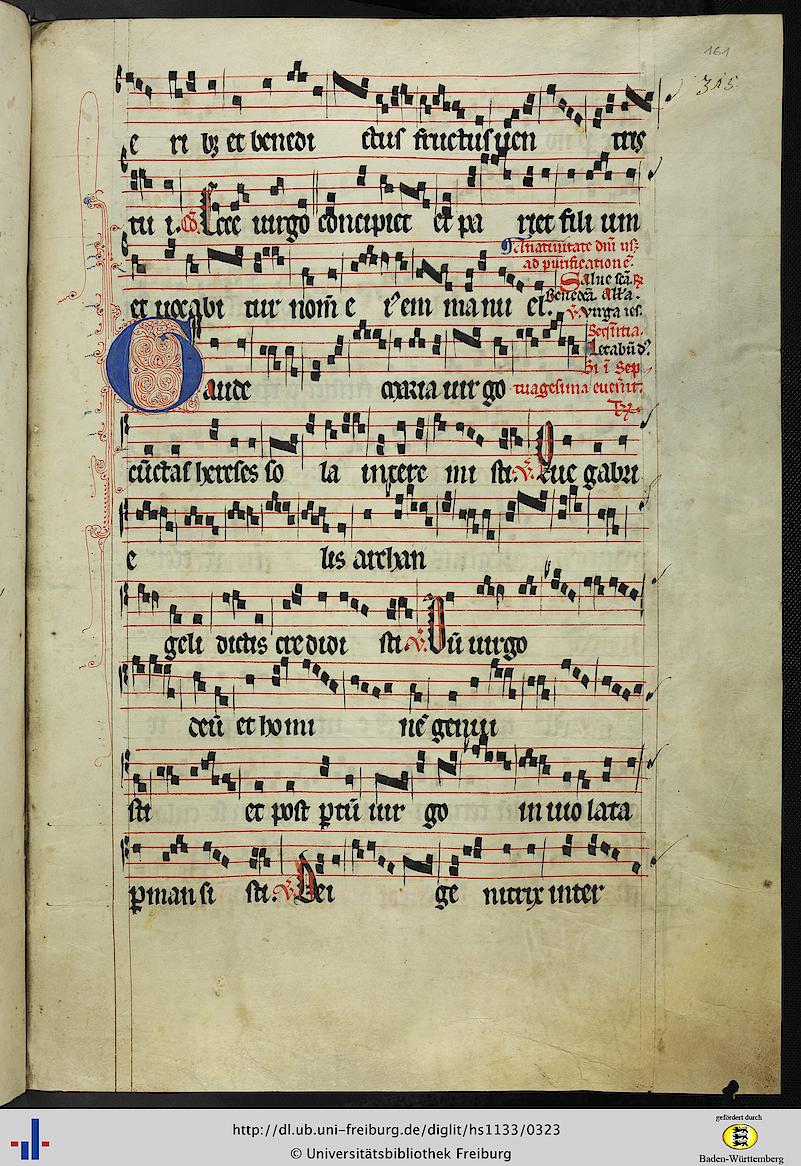 161
315
e ri bꝫ et benedi ctus fructus uen tris
tu i. Co. Ecce uirgo concipiet et pa riet fili um
et uocabi tur nom̄ e i᷒ em manu el.
In natiuitate dn̄i usqꝫ
ad purificationē.
Salue sc̄a
Benedc̄a. all'a.
v. Virga ies.
Gaude maria uir go
Seqn̄tia.
Letabūd᷒
Si ī Sep
tuagesima euen̄it.
Tr̄.
cūctas hereses so la intere mi sti. v. Que gabri
e lis archan
geli dictis credidi sti. v. Dū uirgo
deū et homi nē genui
sti et post ꝑtū uir go in uio lata
ꝑmansi sti. v. Dei ge nitrix inter
http://dl.ub.uni-freiburg.de/diglit/hs1133/0323
© Universitätsbibliothek Freiburg
gefördert durch
Baden-Württemberg